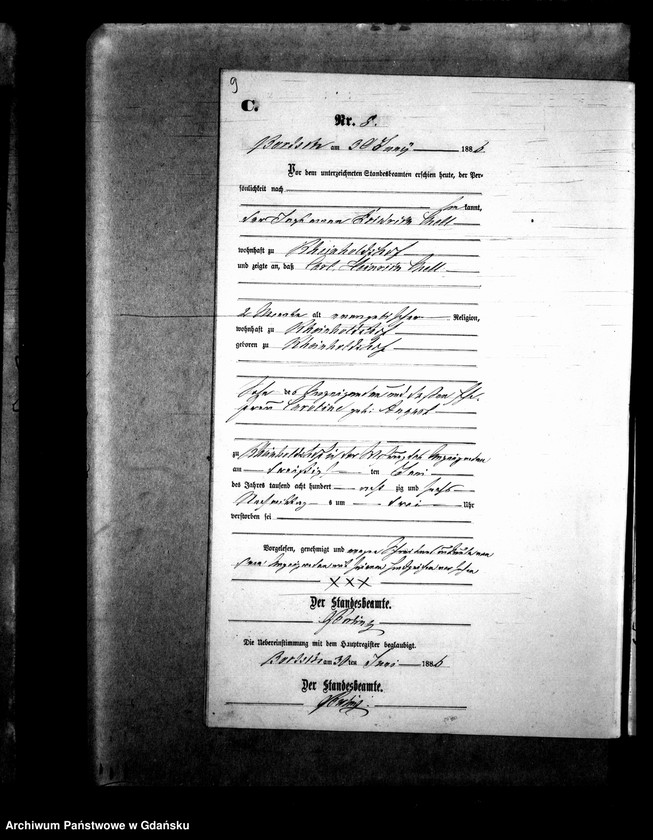 9
C.
Nr. 8.
am 30 Juny 1886
Vor dem unterzeichneten Standesbeamten erschien heute, der Per-
sönlichkeit nach
kannt,
der Friedrich
wohnhaft zu Rheinholdshof
und zeigte an, daß Carl Heinrich
2 Monate alt evangelischer Religion,
wohnhaft zu Rheinholdshof
geboren zu Rheinholdshof
Sohn des Anzeigenden und dessen Ehe-
frau Caroline geb: August
zu Rheinholdshof in der Wohnung des Anzeigenden
am dreißigsten Juni
des Jahres tausend acht hundert acht zig und sechs
Nachmittags um drei Uhr
verstorben sei
Vorgelesen, genehmigt und wegen
dem Anzeigenden mit seinem Handzeichen versehen
XXX
Der Standesbeamte.
Die Uebereinstimmung mit dem Hauptregister beglaubigt.
am 30ten Juni 1886
Der Standesbeamte.
Archiwum Państwowe w Gdańsku